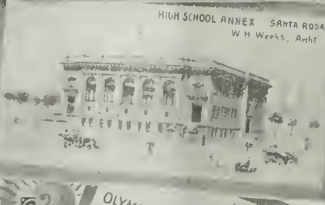 HIGH SCHOOL ANNEX SANTA ROSA
W H Weeks, Archt